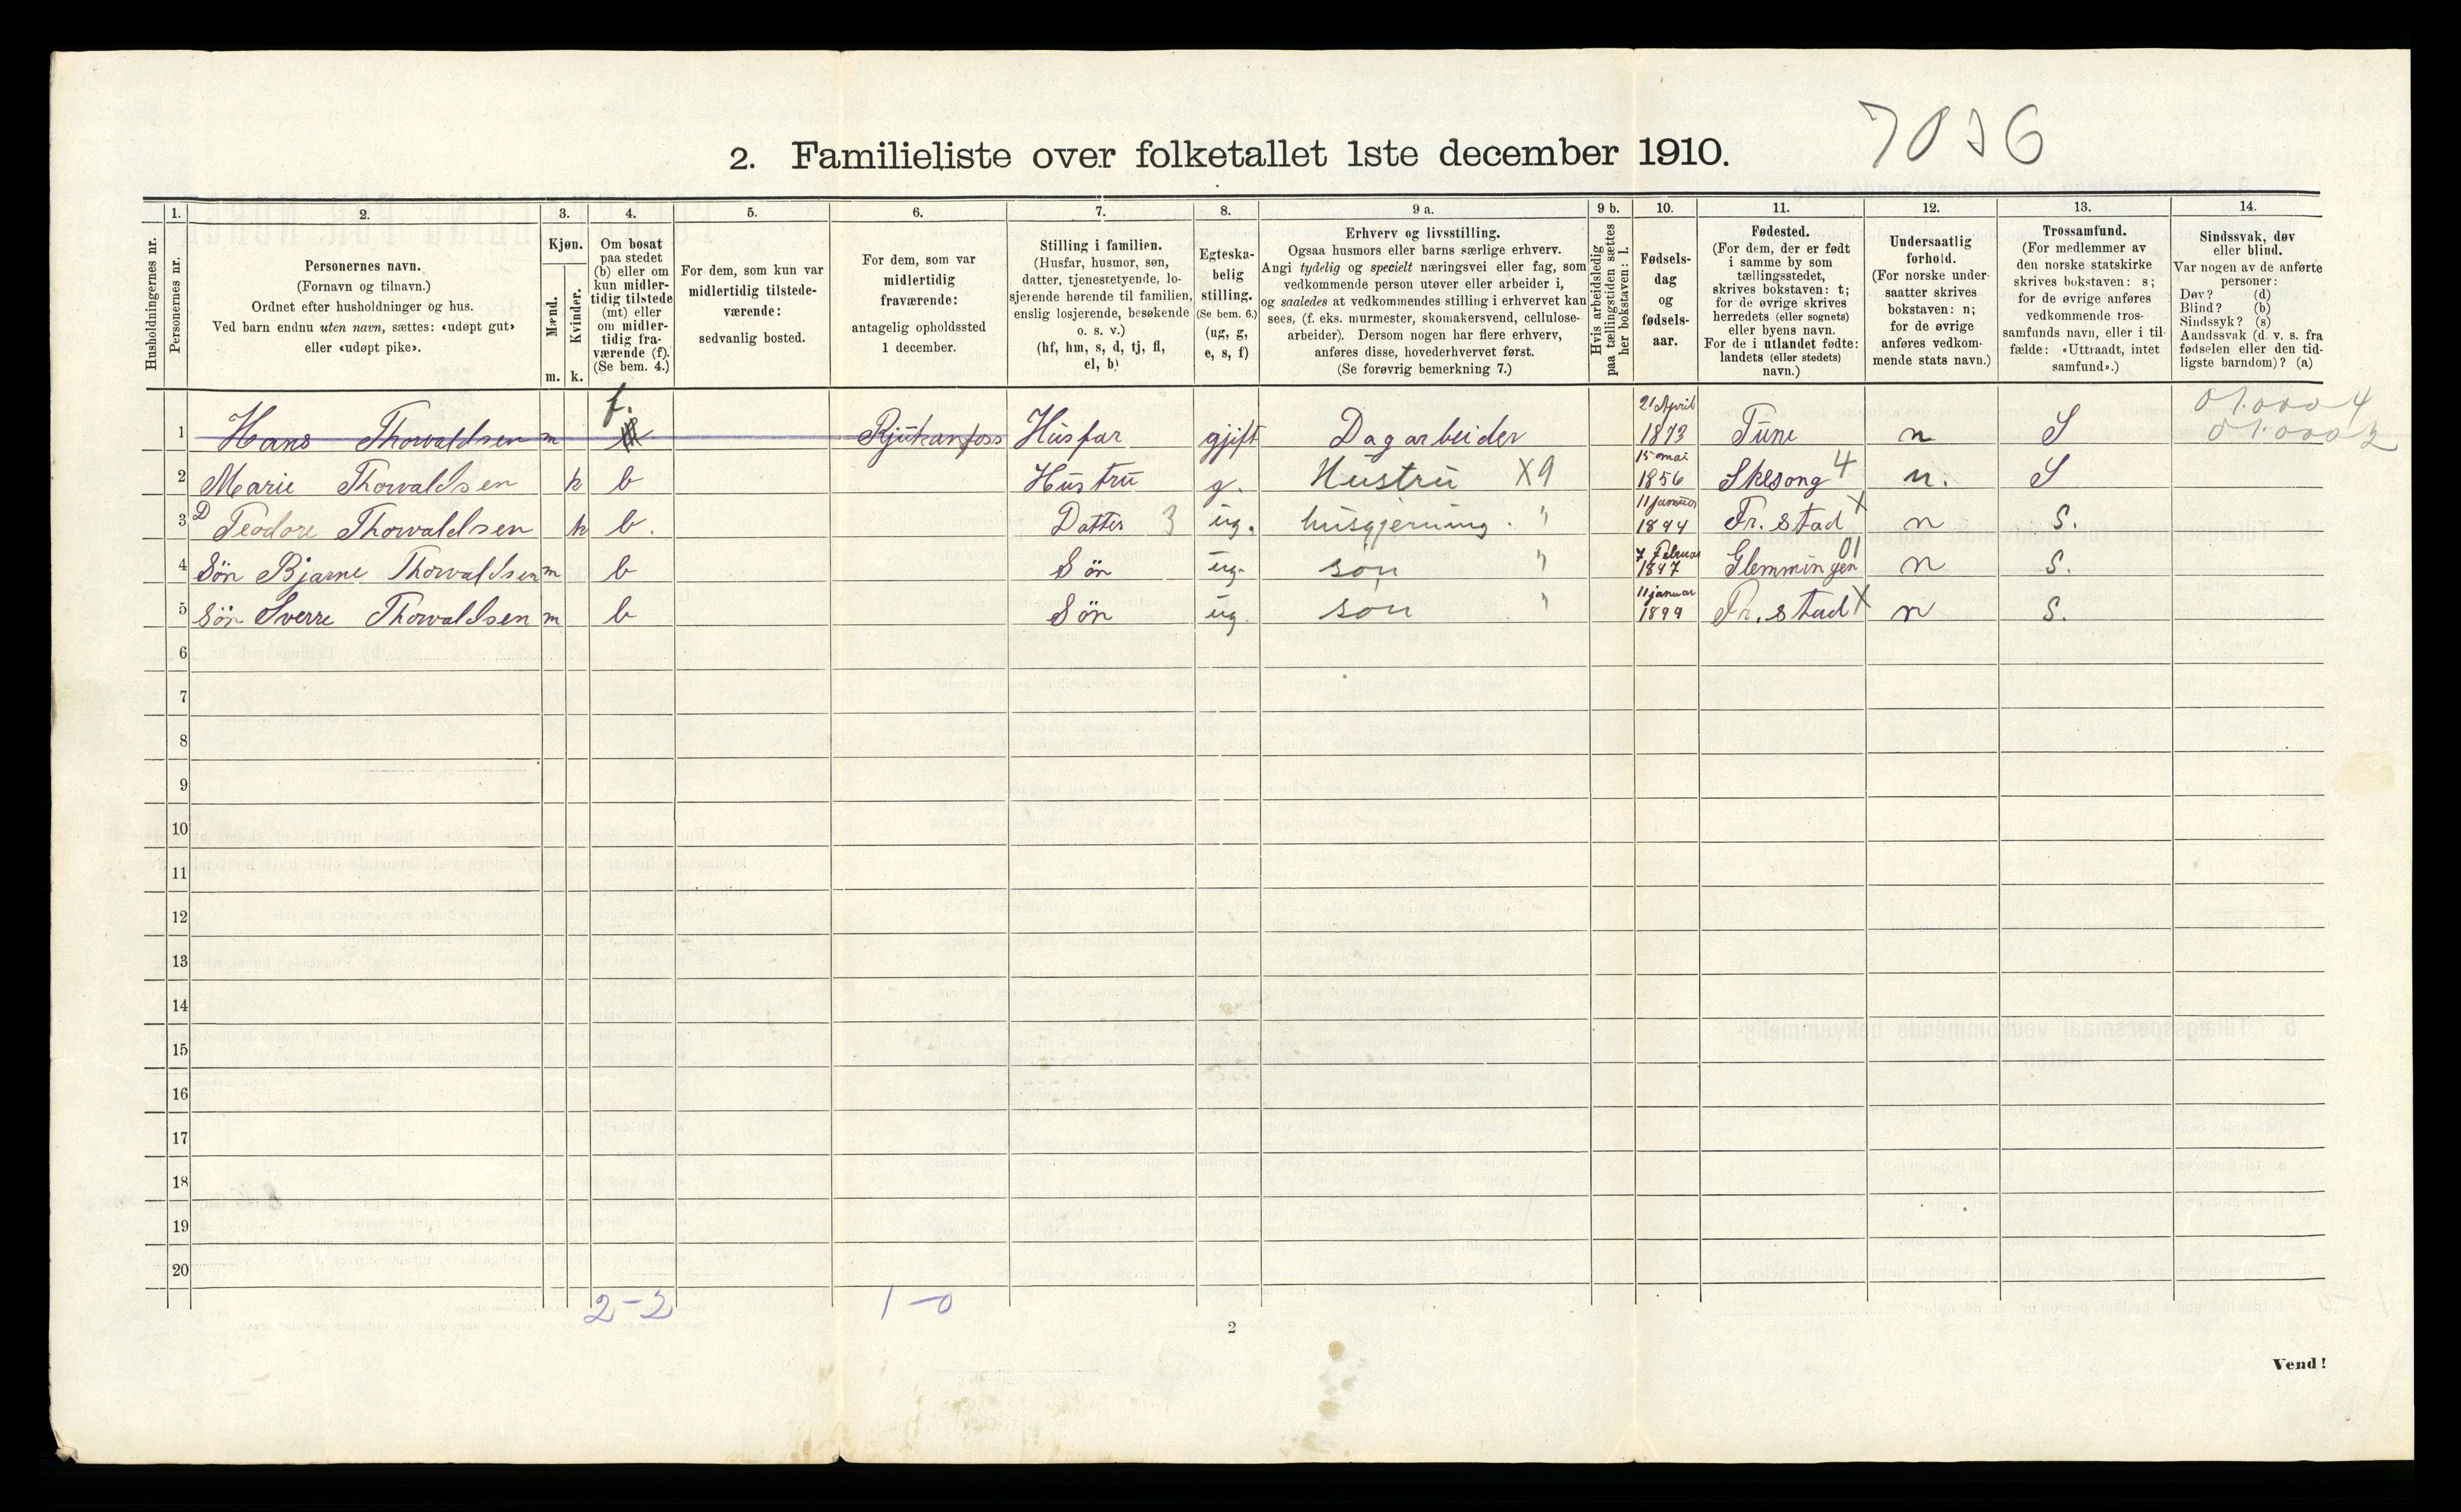 7036
2. Familieliste over folketallet 1ste december 1910.
Husholdningernes nr.
1.
Personernes nr.
2.
Personernes navn.
(Fornavn og tilnavn.)
Ordnet efter husholdninger og hus.
Ved barn endnu uten navn, sættes: «udøpt gut»
eller «udøpt pike».
3.
Kjøn.
Mænd.
Kvinder.
m. k.
4.
Om bosat
paa stedet
(b) eller om
kun midler-
tidig tilstede
(mt) eller
om midler-
tidig fra-
værende (f).
(Se bem. 4.)
5.
For dem, som kun var
midlertidig tilstede-
værende:
sedvanlig bosted.
6.
For dem, som var
midlertidig
fraværende:
antagelig opholdssted
1 december.
7.
Stilling i familien.
(Husfar, husmor, søn,
datter, tjenestetyende, lo-
sjerende hørende til familien,
enslig losjerende, besøkende
o. s. v.)
(hf, hm, s, d, tj, fl,
el, b)
8.
Egteska-
belig
stilling.
(Se bem. 6.)
(ug, g,
e, s, f)
9 a.
Erhverv og livsstilling.
Ogsaa husmors eller barns særlige erhverv.
Angi tydelig og specielt næringsvei eller fag, som
vedkommende person utøver eller arbeider i,
og saaledes at vedkommendes stilling i erhvervet kan
sees, (f. eks. murmester, skomakersvend, cellulose-
arbeider). Dersom nogen har flere erhverv,
anføres disse, hovederhvervet først.
(Se forøvrig bemerkning 7.)
9 b.
Hvis arbeidsledig
paa tællingstiden sættes
her bokstaven: l.
10.
Fødsels-
dag
og
fødsels-
aar.
11.
Fødested.
(For dem, der er født
i samme by som
tællingsstedet,
skrives bokstaven: t;
for de øvrige skrives
herredets (eller sognets)
eller byens navn.
For de i utlandet fødte:
landets (eller stedets)
navn.)
12.
Undersaatlig
forhold.
(For norske under-
saatter skrives
bokstaven: n;
for de øvrige
anføres vedkom-
mende stats navn.)
13.
Trossamfund.
(For medlemmer av
den norske statskirke
skrives bokstaven: s;
for de øvrige anføres
vedkommende tros-
samfunds navn, eller i til-
fælde: «Uttraadt, intet
samfund».)
14.
Sindssvak, døv
eller blind.
Var nogen av de anførte
personer:
Døv? (d)
Blind? (b)
Sindssyk? (s)
Aandssvak (d. v. s. fra
fødselen eller den tid-
ligste barndom)? (a)
1 Hans Thorvaldsen m f. Rjukanfoss Husfar gjift Dagarbeider 21 April 1873 Tune n S 01.000 4
01.000 2
2 Marie Thorvaldsen k b Hustru g. Hustru X9 15 mai 1856 Skesong 4 n. S
3 D Teodore Thorvaldsen k b. Datter 3 ug. husgjerning. " 11 januar 1894 Fr. stad X n S.
4 Sön Bjarne Thorvaldsen m b Sön ug. søn " 7 Februar 1897 Glemmingen 01 n S.
5 Sön Sverre Thorvaldsen m b Sön ug. søn " 11 januar 1899 Fr. stad X n S.
6
7
8
9
10
11
12
13
14
15
16
17
18
19
20
2-2 1-0
2
Vend!